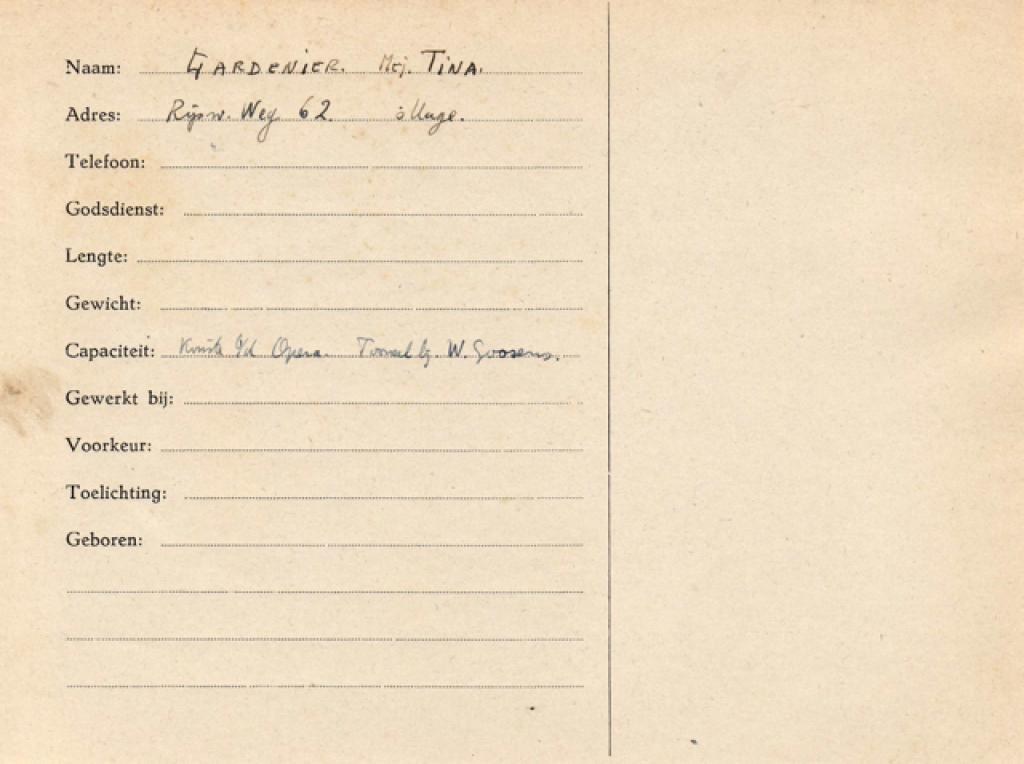 Naam: GARDENIER. Mej. TINA.
Adres: Rijsw. Weg 62. s'Hage.
Telefoon:
Godsdienst:
Lengte:
Gewicht:
Capaciteit: Opera. W. Goossens.
Gewerkt bij:
Voorkeur:
Toelichting:
Geboren: